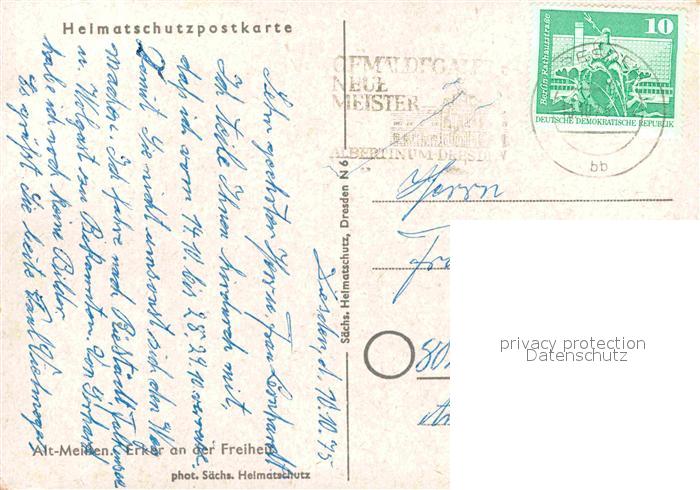 Heimatschutzpostkarte
Dresden, d. 1. V. 75
Sehr geehrter Herr Franz Lenhardt
Ich teile Ihnen hierdurch mit,
daß ich vom 14. V. bis 28.29. V. verreise.
Damit Sie nicht umsonst sich den Weg
machen. Ich fahre nach
u. Wolgast zu Bekannten. Von
habe ich noch keine Bilder.
Es grüßt Sie heute Paul
Alt-Meißen. Erker an der Freiheit
phot. Sächs. Heimatschutz
Sächs. Heimatschutz, Dresden N 6
GEMÄLDEGALERIE
NEUE
MEISTER
ALBERTINUM DRESDEN
DRESDEN
bb
10
Berlin, Rathausstraße
DEUTSCHE DEMOKRATISCHE REPUBLIK
Herrn
Fra
801
privacy protection
Datenschutz